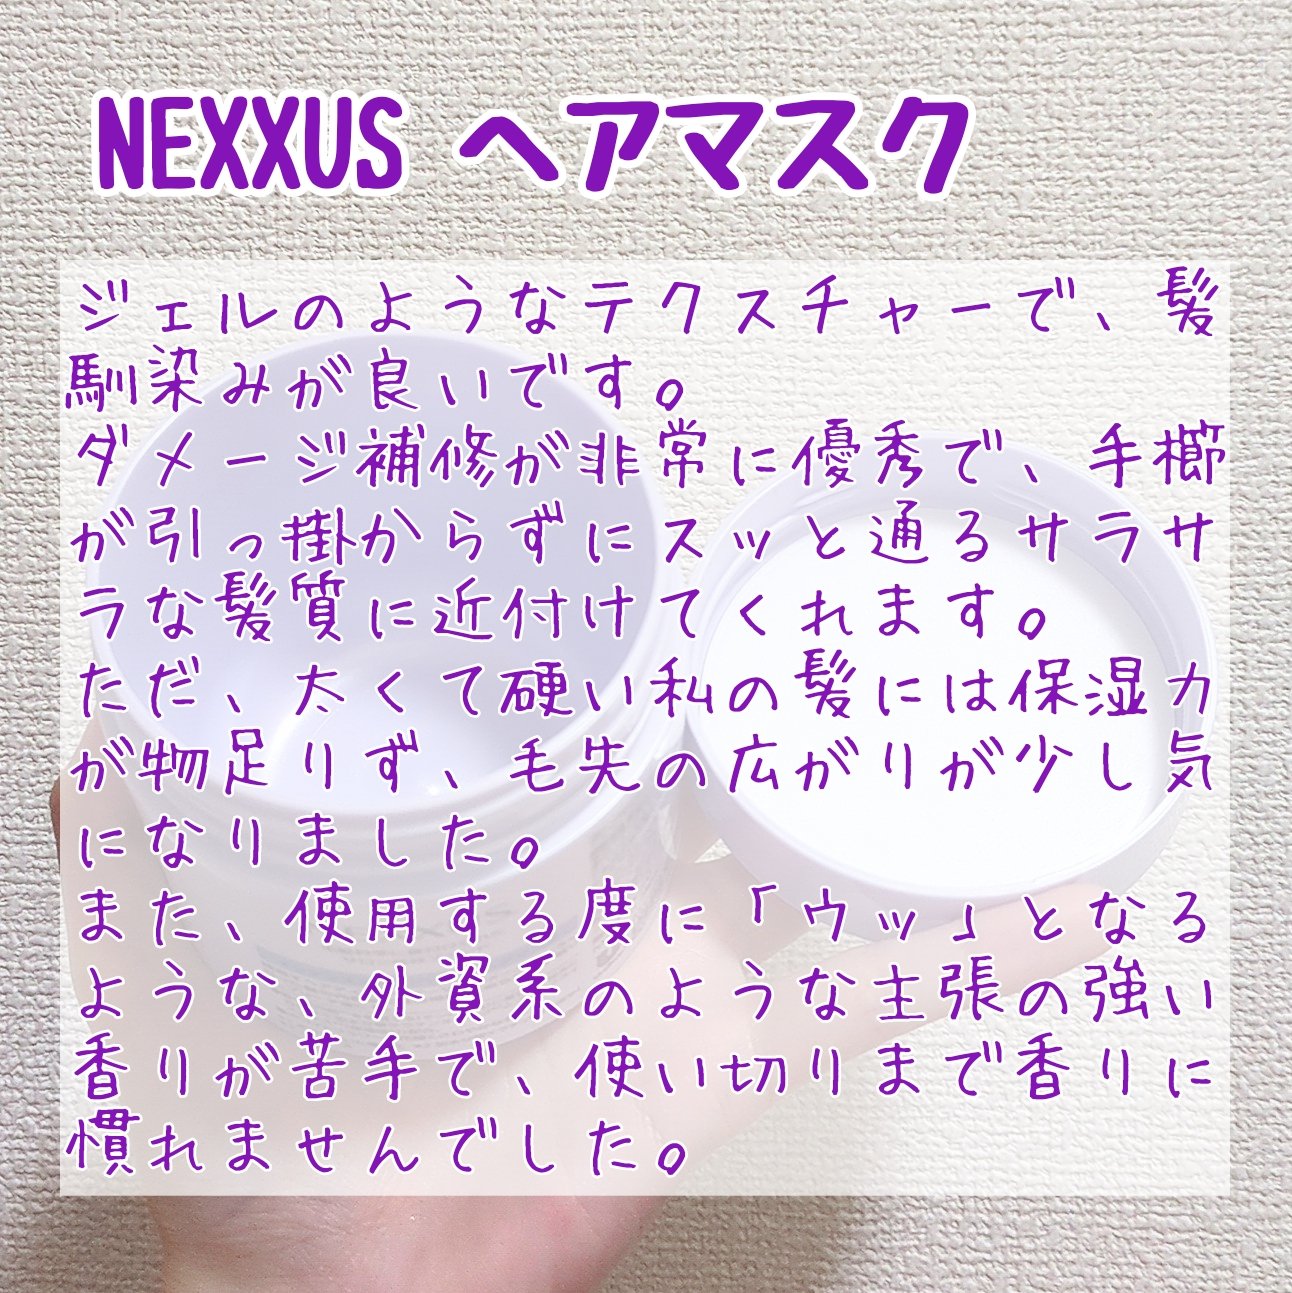 NEXXUS ヘアマスク
ジェルのようなテクスチャーで、髪
馴染みが良いです。
ダメージ補修が非常に優秀で、手櫛
が引っ掛からずにスッと通るサラサ
ラな髪質に近付けてくれます。
ただ、太くて硬い私の髪には保湿力
が物足りず、毛先の広がりが少し気
になりました。
また、使用する度に「ウッ」となる
ような、外資系のような主張の強い
香りが苦手で、使い切りまで香りに
慣れませんでした。